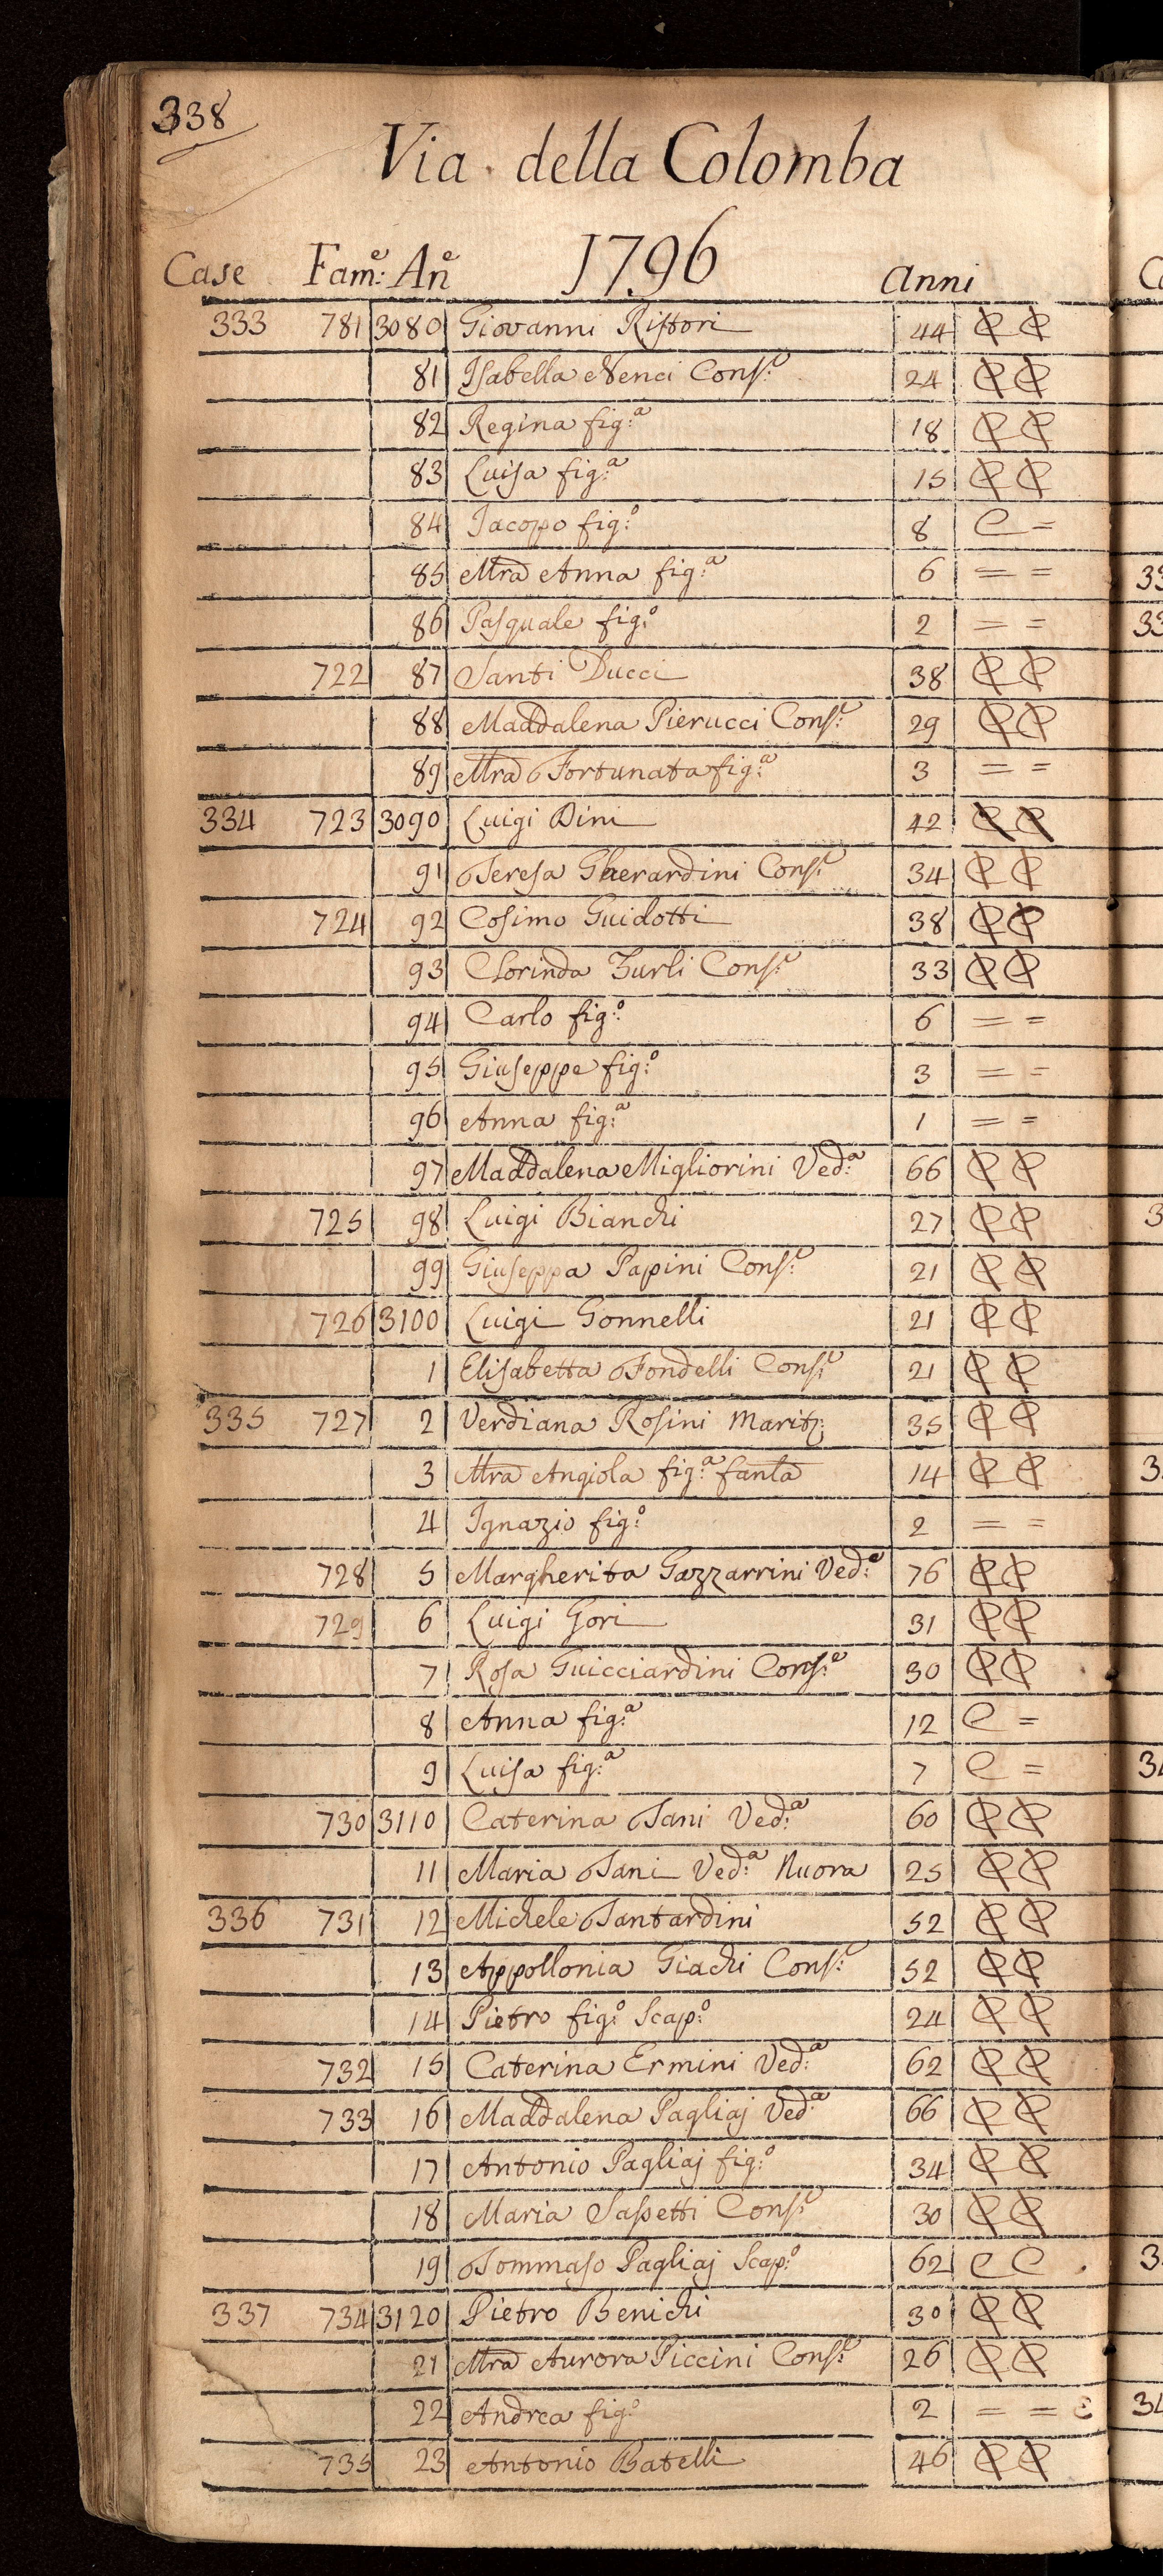 338
Via della Colomba
Case Fam:e An:e 1796 Anni
333 781 3080 Giovanni Ristori 44
81 Isabella Nenci Cons:e 24
82 Regina fig:a 18
83 Luisa fig:a 15
84 Jacopo fig:o 8 C =
85 Mra Anna fig:a 6 = =
86 Pasquale fig:o 2 = =
722 87 Santi Ducci 38
88 Maddalena Pierucci Cons:e 29
89 Mra Fortunata fig:a 3 = =
334 723 3090 Luigi Dini 42
91 Teresa Gherardini Cons:e 34
724 92 Cosimo Guidotti 38
93 Clorinda Turli Cons:e 33
94 Carlo fig:o 6 = =
95 Giuseppe fig:o 3 = =
96 Anna fig:a 1 = =
97 Maddalena Migliorini Ved:a 66
725 98 Luigi Bianchi 27
99 Giuseppa Papini Cons:e 21
726 3100 Luigi Gonnelli 21
1 Elisabetta Fondelli Cons:e 21
335 727 2 Verdiana Rosini Marit: 35
3 Mra Angiola fig:a fanla 14
4 Ignazio fig:o 2 = =
728 5 Margherita Gazzarrini Ved:a 76
729 6 Luigi Gori 31
7 Rosa Guicciardini Cons:e 30
8 Anna fig:a 12 C =
9 Luisa fig:a 7 C =
730 3110 Caterina Tani Ved:a 60
11 Maria Tani Ved:a Nuora 25
336 731 12 Michele Tantardini 52
13 Appollonia Giachi Cons:e 52
14 Pietro fig:o Scap:o 24
732 15 Caterina Ermini Ved:a 62
733 16 Maddalena Pagliaj Ved:a 66
17 Antonio Pagliaj fig:o 34
18 Maria Sassetti Cons:e 30
19 Tommaso Pagliaj Scap:o 62 C C
337 734 3120 Pietro Benichi 30
21 Mra Aurora Piccini Cons:e 26
22 Andrea fig:o 2 = =
735 23 Antonio Batelli 46